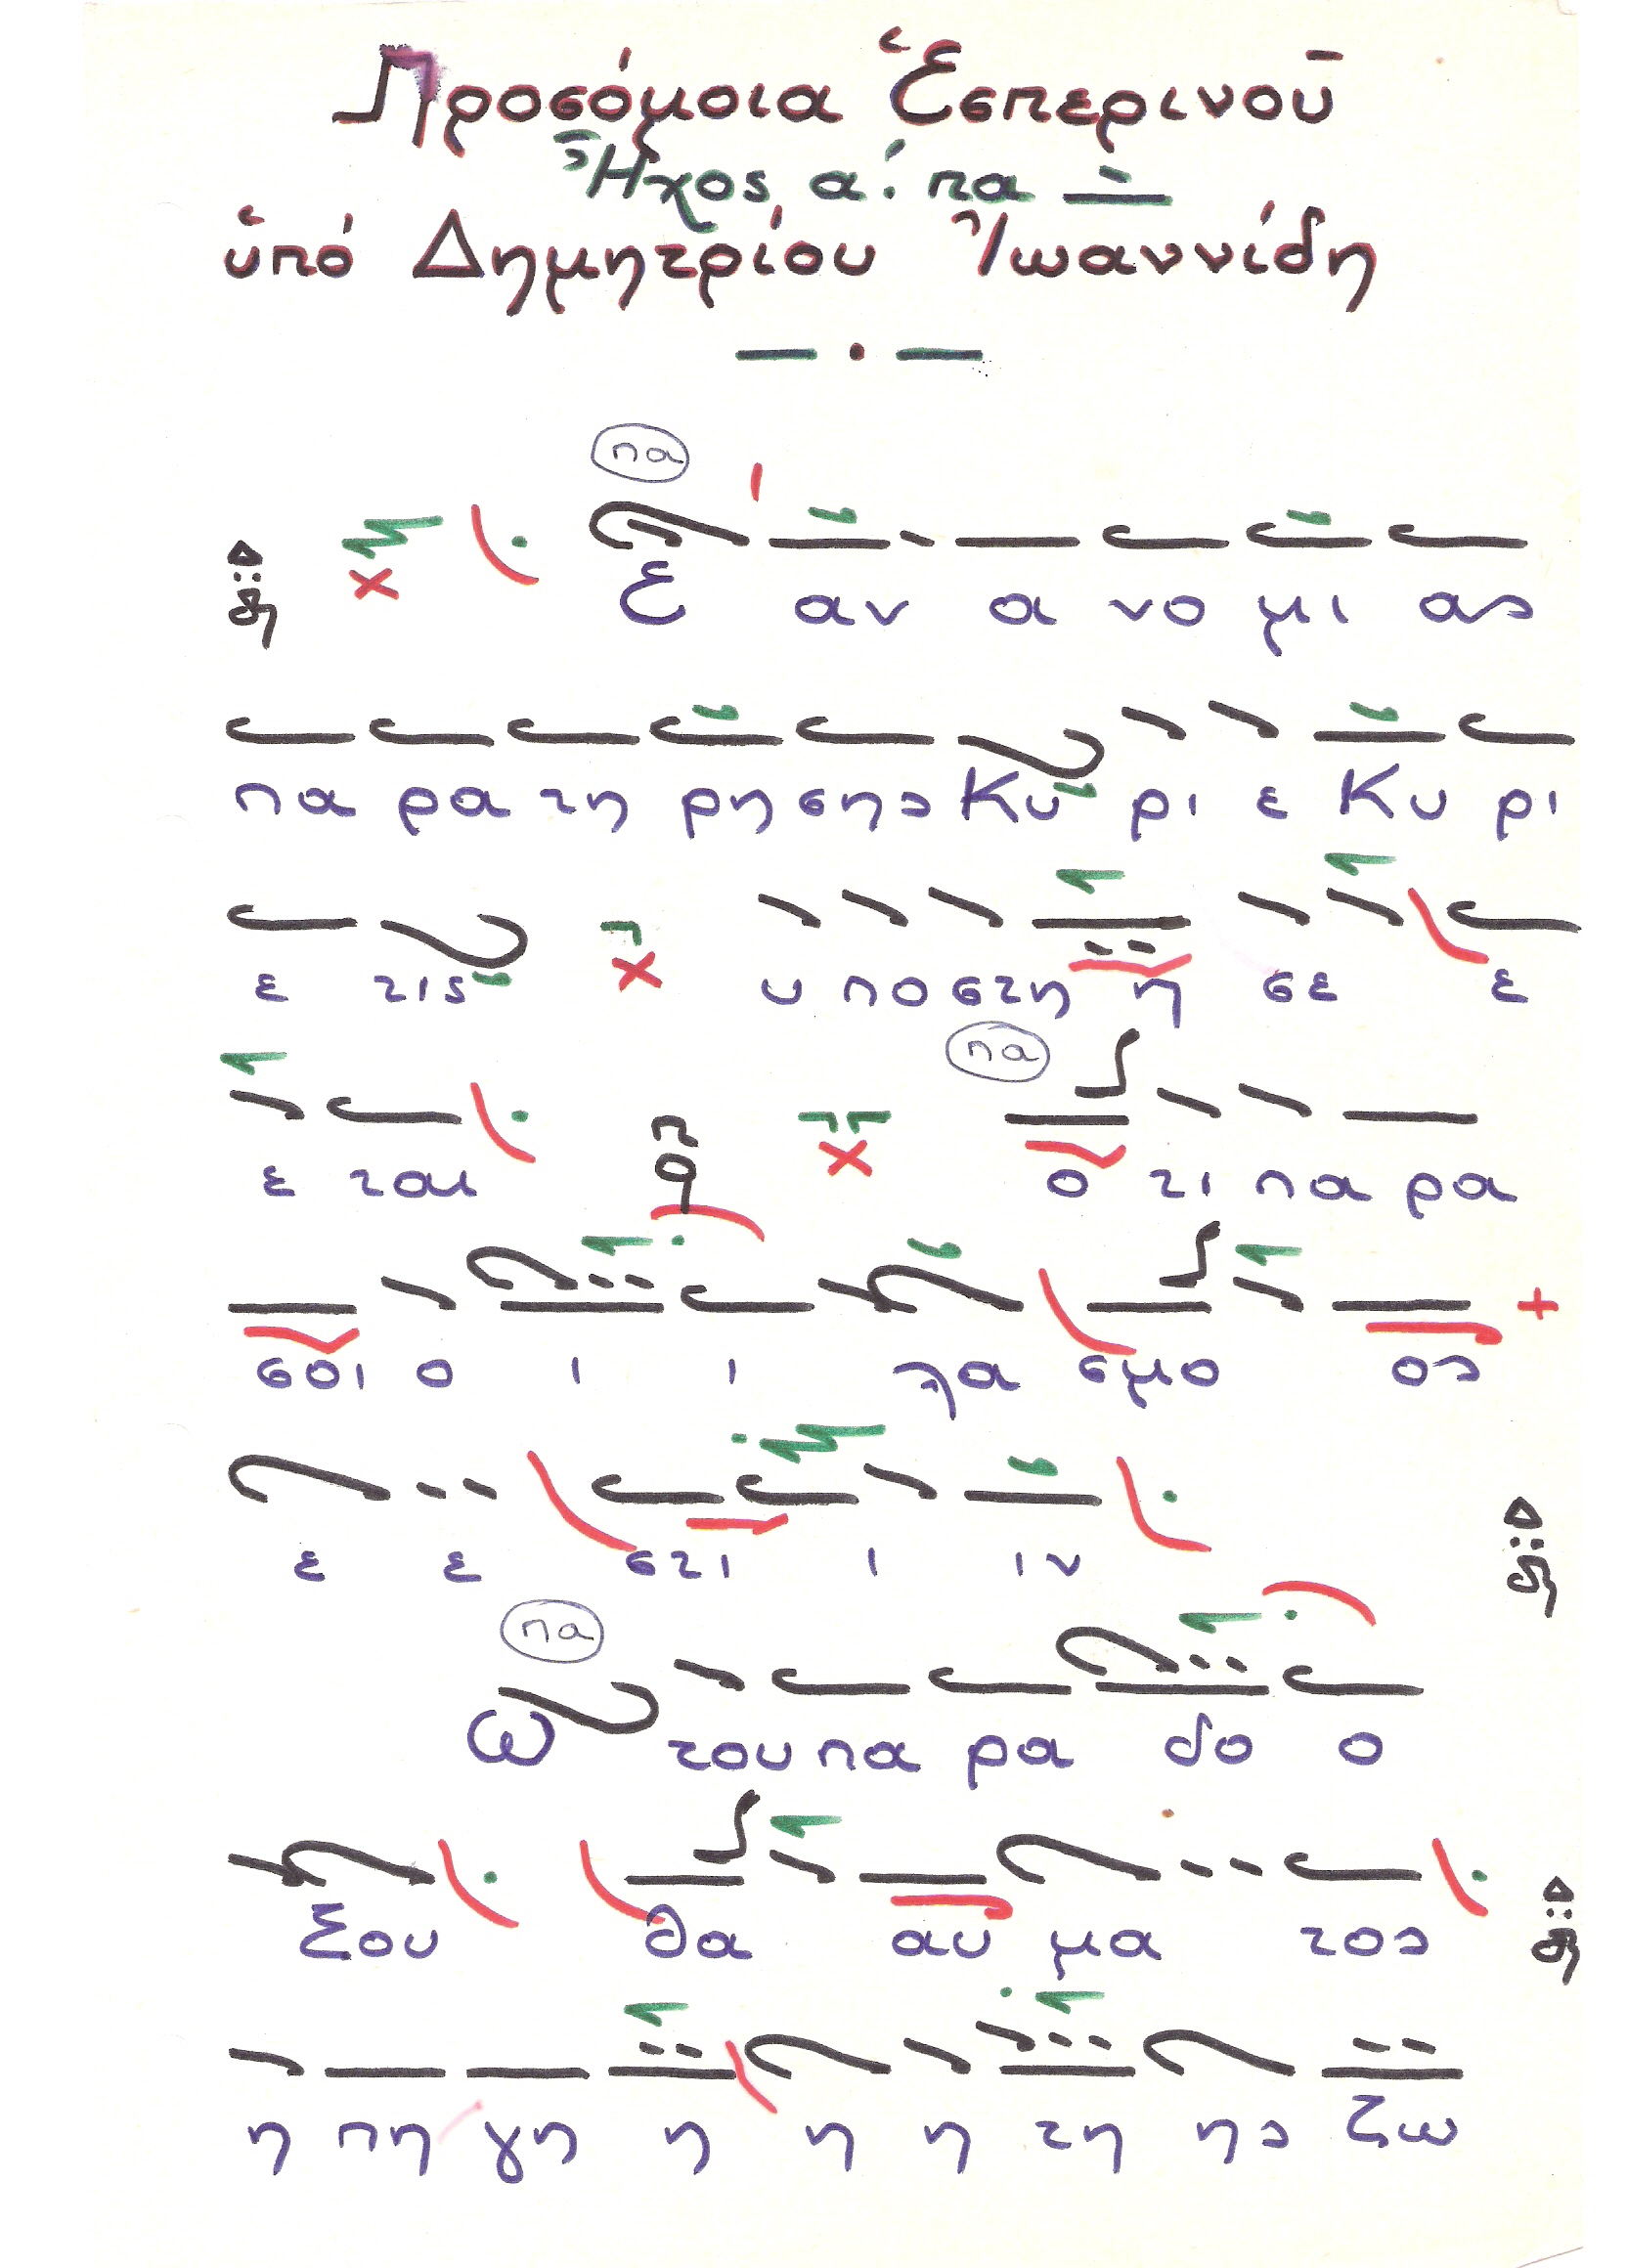 Προσόμοια Ἑσπερινοῦ
Ἦχος α΄. πα
ὑπό Δημητρίου Ἰωαννίδη
πα
Ε αν α νο μι ας
πα ρα τη ρη σης Κυ ρι ε Κυ ρι
ε τις υ πο στη η σε ε
πα
ε ται ο τι πα ρα
σοι ο ι ι λα σμο ος
ε ε στι ι ιν
πα
Ω του πα ρα δο ο
ξου θα αυ μα τος
η πη γη η η η τη ης ζω